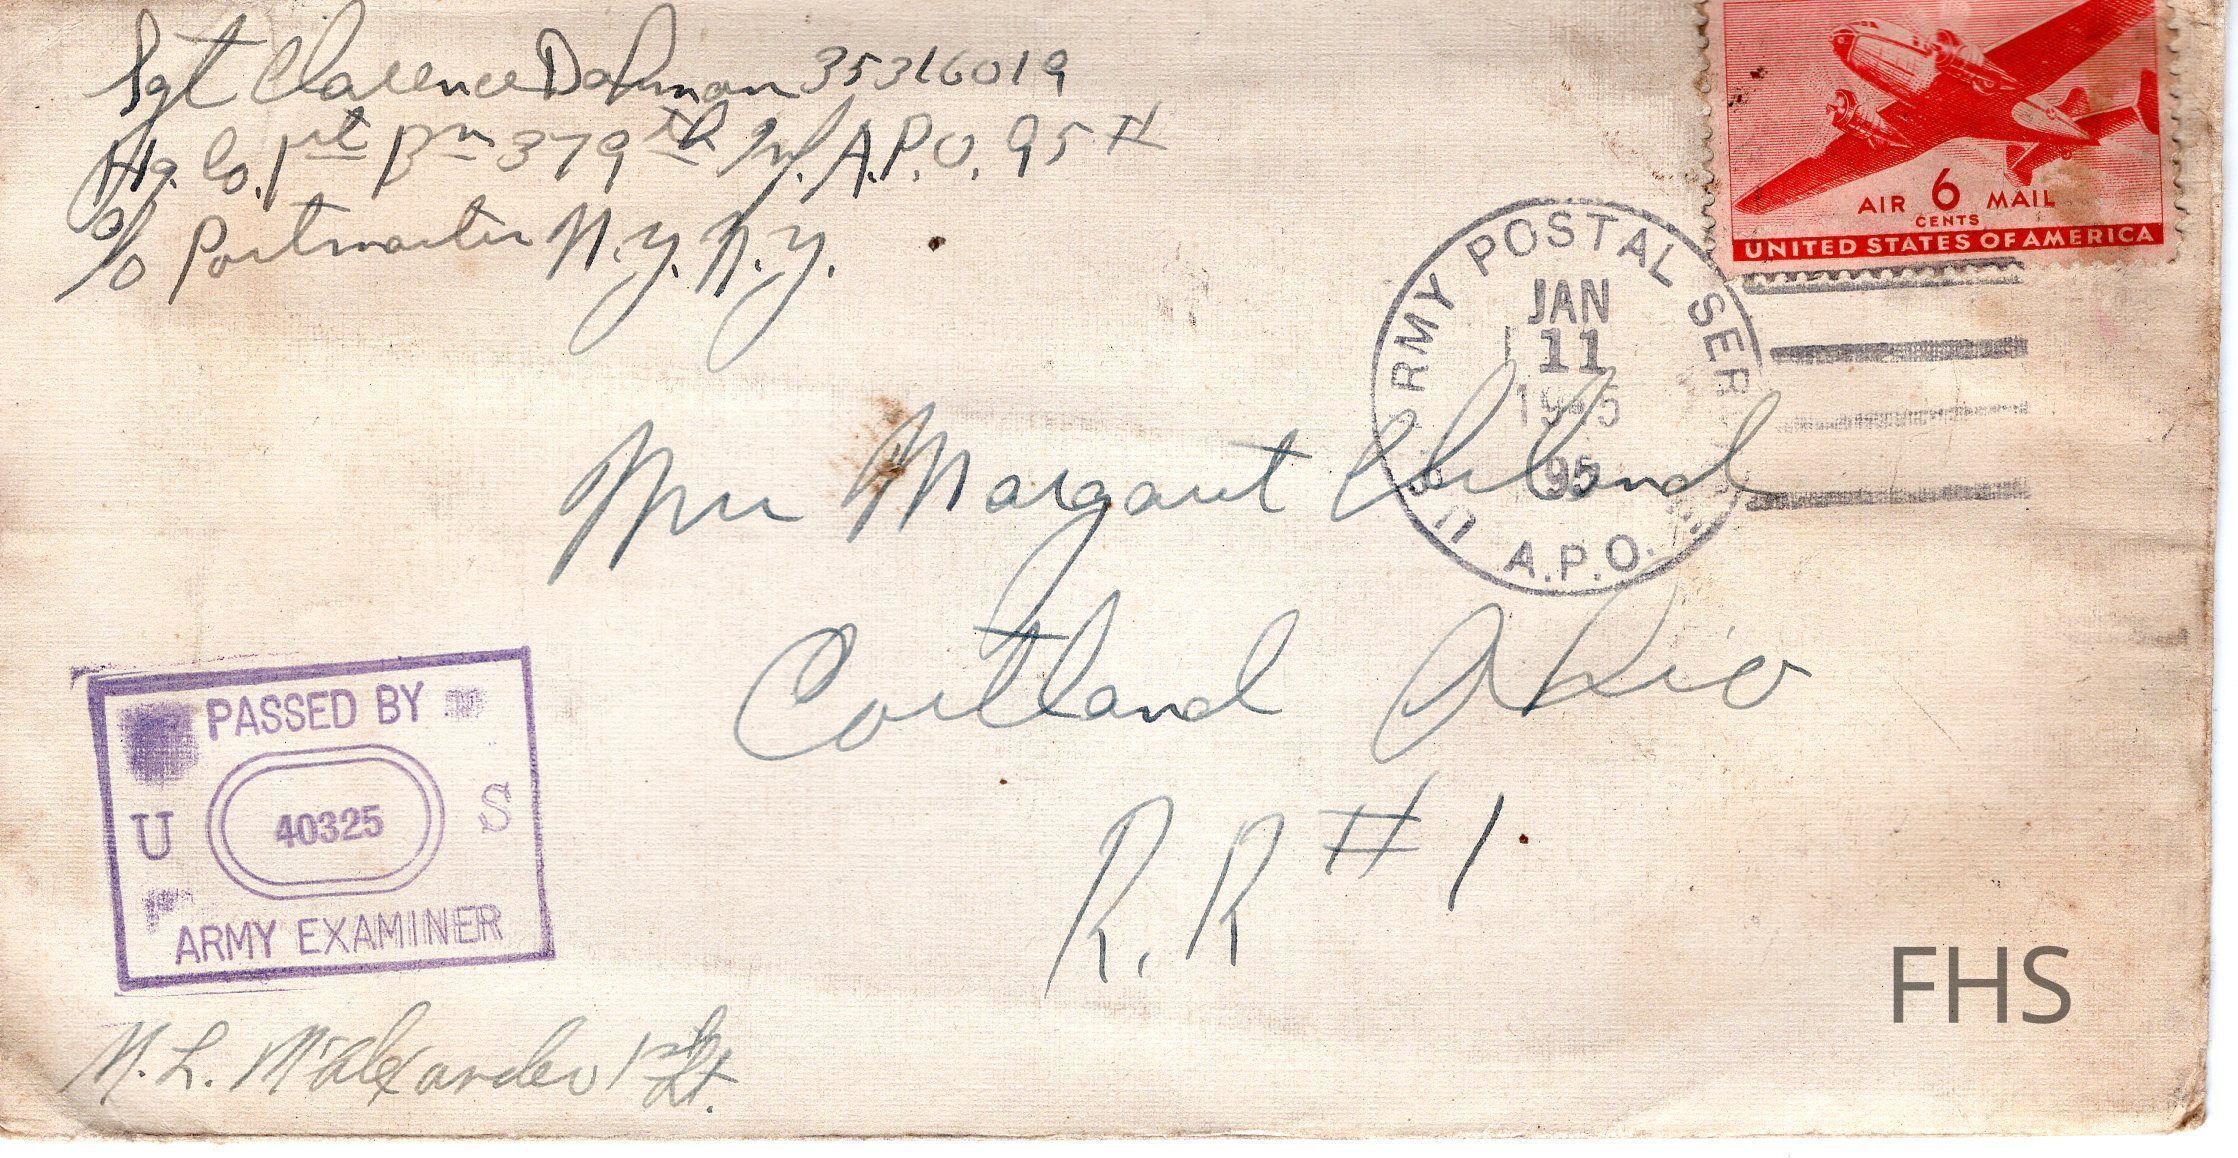 Sgt Clarence Dohman 35316019
Hq. Co. 1st Bn 379th Inf. A.P.O. 95 #
c/o Postmaster N.Y. N.Y.
AIR 6 MAIL
CENTS
UNITED STATES OF AMERICA
ARMY POSTAL SER
JAN
11
1945
95
U A.P.O.
Margaret
Cortland Ohio
R.R # 1
PASSED BY
U 40325 S
ARMY EXAMINER
M. L. M'Alexander 1st Lt.
FHS